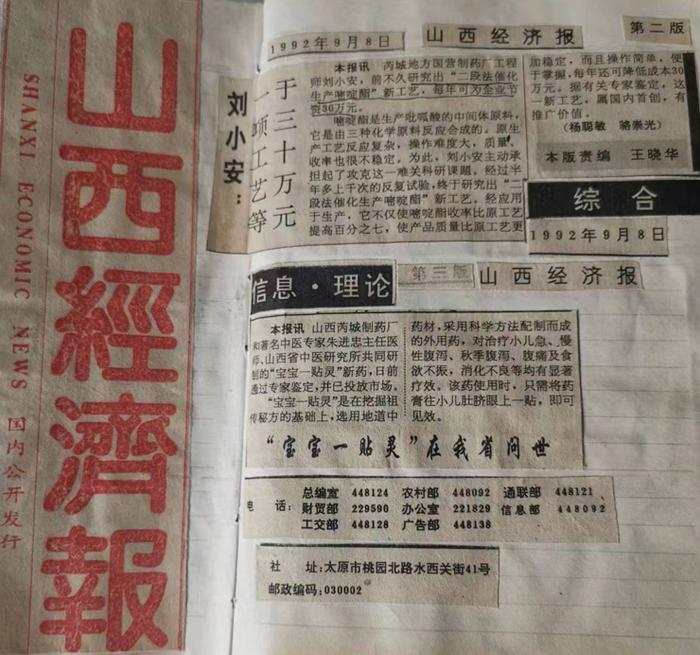 山西經濟報
SHANXI ECONOMIC NEWS 国内公开发行
1992年9月8日
山西经济报
第二版
刘小安：
一项工艺等
于三十万元
本报讯 芮城地方国营制药厂工程
师刘小安，前不久研究出“二段法催化
生产嘧啶酯”新工艺，每年可为企业节
资30万元。
嘧啶酯是生产吡弧酸的中间体原料，
它是由三种化学原料反应合成的。原生
产工艺反应复杂，操作难度大，质量、
收率也很不稳定。为此，刘小安主动承
担起了攻克这一难关科研课题。经过半
年多上千次的反复试验，终于研究出“二
段法催化生产嘧啶酯”新工艺。经应用
于生产，它不仅使嘧啶酯收率比原工艺
提高百分之七，使产品质量比原工艺更
加稳定，而且操作简单，便
于掌握，每年还可降低成本30
万元。据有关专家鉴定，这
一新工艺，属国内首创，有
推广价值。
（杨聪敏 骆崇光）
本版责编 王晓华
综合
1992年9月8日
信息·理论
第三版
山西经济报
本报讯 山西芮城制药厂
和著名中医专家朱进忠主任医
师、山西省中医研究所共同研
制的“宝宝一贴灵”新药，日前
通过专家鉴定，并已投放市场。
“宝宝一贴灵”是在挖掘祖
传秘方的基础上，选用地道中
药材，采用科学方法配制而成
的外用药，对治疗小儿急、慢
性腹泻、秋季腹泻、腹痛及食
欲不振，消化不良等均有显著
疗效。该药使用时，只需将药
膏往小儿肚脐眼上一贴，即可
见效。
“宝宝一贴灵”在我省问世
电 话： 总编室 448124 农村部 448092 通联部 448121
财贸部 229590 办公室 221829 信息部 448092
工交部 448128 广告部 448138
社 址：太原市桃园北路水西关街41号
邮政编码：030002